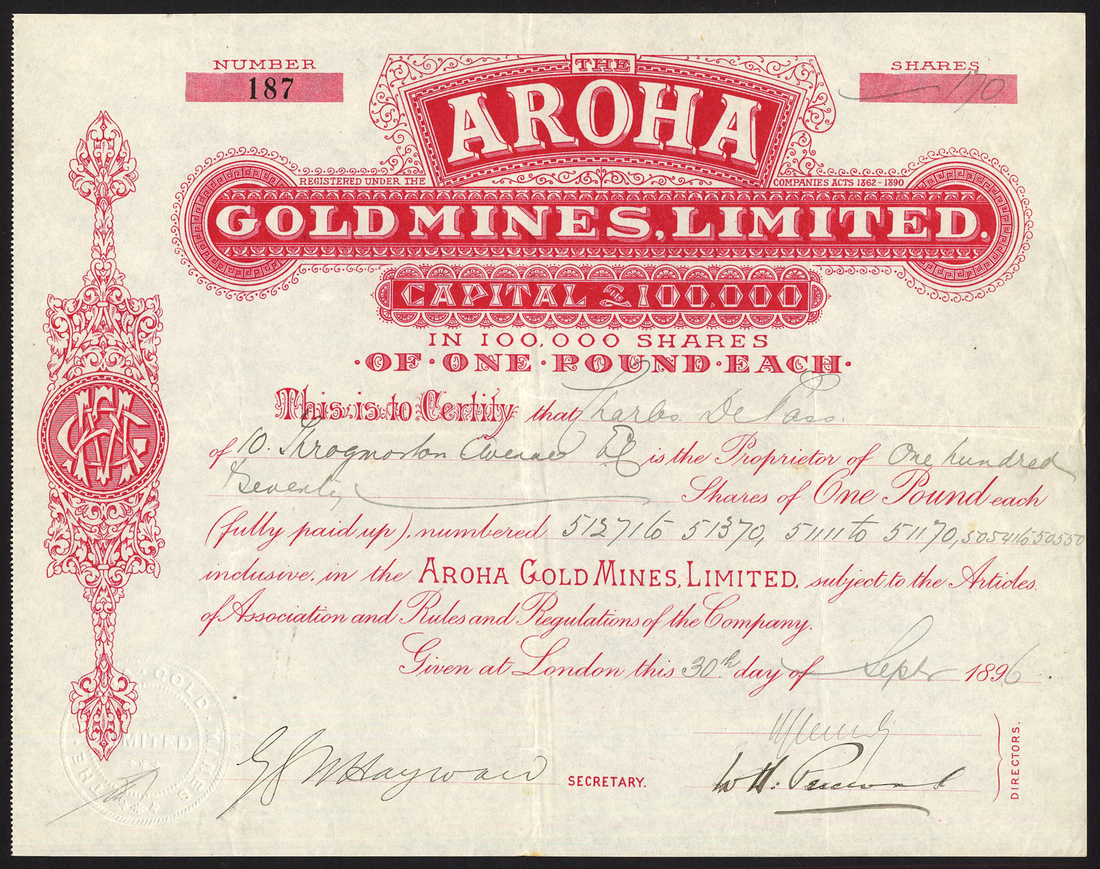 NUMBER
187
SHARES
170
THE
AROHA
REGISTERED UNDER THE COMPANIES ACTS 1862-1890
GOLD MINES, LIMITED.
CAPITAL £100,000
IN 100,000 SHARES
·OF·ONE·POUND·EACH·
This is to Certify that Charles De Pass.
of 10. Throgmorton Avenue EC is the Proprietor of One hundred
& Seventy Shares of One Pound each
(fully paid up), numbered 51271 to 51370, 51111 to 51170, 50541 to 50550
inclusive, in the AROHA GOLD MINES, LIMITED, subject to the Articles
of Association and Rules and Regulations of the Company.
Given at London this 30th day of Sept 1896
Hayward SECRETARY.
W H. Perceval
DIRECTORS.
GOLD
LIMITED
THE